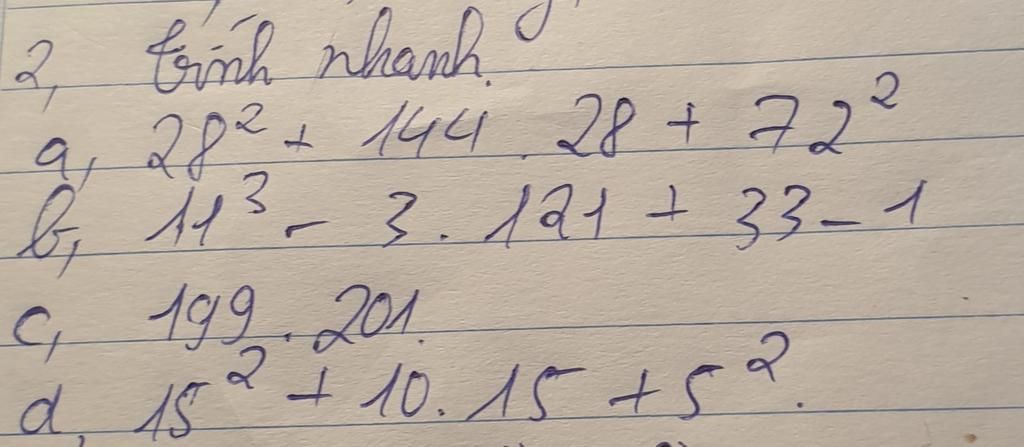 2, tính nhanh.
a, 28² + 144 . 28 + 72²
b, 11³ - 3 . 121 + 33 - 1
c, 199 . 201.
d, 15² + 10 . 15 + 5².